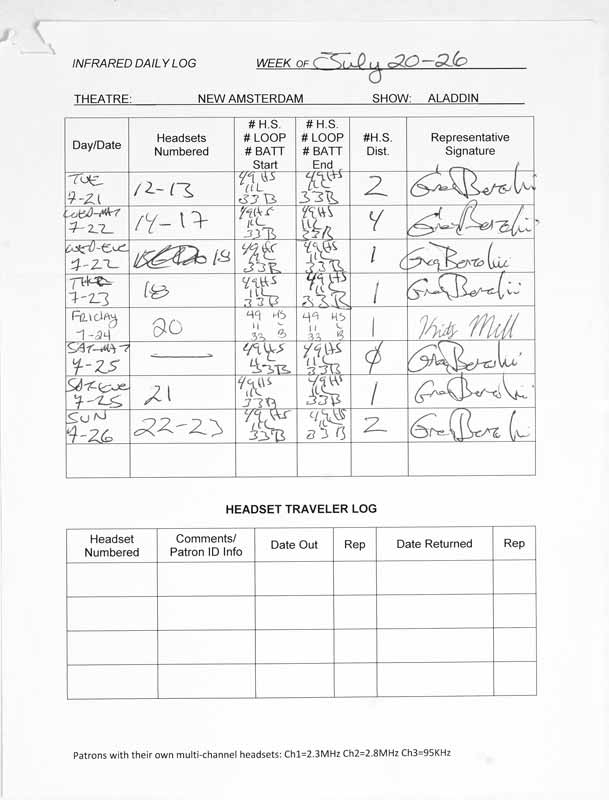 INFRARED DAILY LOG WEEK OF July 20-26
THEATRE: NEW AMSTERDAM SHOW: ALADDIN
Day/Date Headsets Numbered # H.S. # LOOP # BATT Start # H.S. # LOOP # BATT End #H.S. Dist. Representative Signature
TUE 7-21 12-13 49HS 11L 33B 49HS 11L 33B 2
WED-MAT 7-22 14-17 49HS 11L 33B 49HS 11L 33B 4
WED-EVE 7-22 18 49HS 11L 33B 49HS 11L 33B 1
THR 7-23 18 49HS 11L 33B 49HS 11L 33B 1
FRIDAY 7-24 20 49 HS 11 L 33 B 49 HS 11 L 33 B 1
SAT-MAT 7-25 — 49HS 11L 33B 49HS 11L 33B Ø
SAT-EVE 7-25 21 49HS 11L 33B 49HS 11L 33B 1
SUN 7-26 22-23 49HS 11L 33B 49HS 11L 33B 2
HEADSET TRAVELER LOG
Headset Numbered Comments/ Patron ID Info Date Out Rep Date Returned Rep
Patrons with their own multi-channel headsets: Ch1=2.3MHz Ch2=2.8MHz Ch3=95KHz